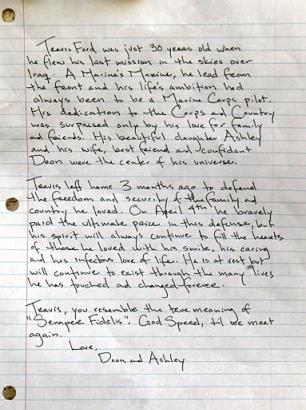 Travis Ford was just 30 years old when
he flew his last mission in the skies over
Iraq. A Marine's Marine, he lead from
the front and his life's ambition had
always been to be a Marine Corps pilot.
His dedication to the Corps and Country
was surpassed only by his love for family
and friends. His beautiful daughter Ashley
and his wife, best friend and confidant
Deon were the center of his universe.
Travis left home 3 months ago to defend
the freedom and security of the family and
country he loved. On April 4th he bravely
paid the ultimate price in this defense, but
his spirit will always continue to fill the hearts
of those he loved with his smile, his caring
and his infectous love of life. He is at rest but
will continue to exist through the many lives
he has touched and changed forever.
Travis, you resemble the true meaning of
"Semper Fidelis". God Speed, til we meet
again.
Love,
Deon and Ashley